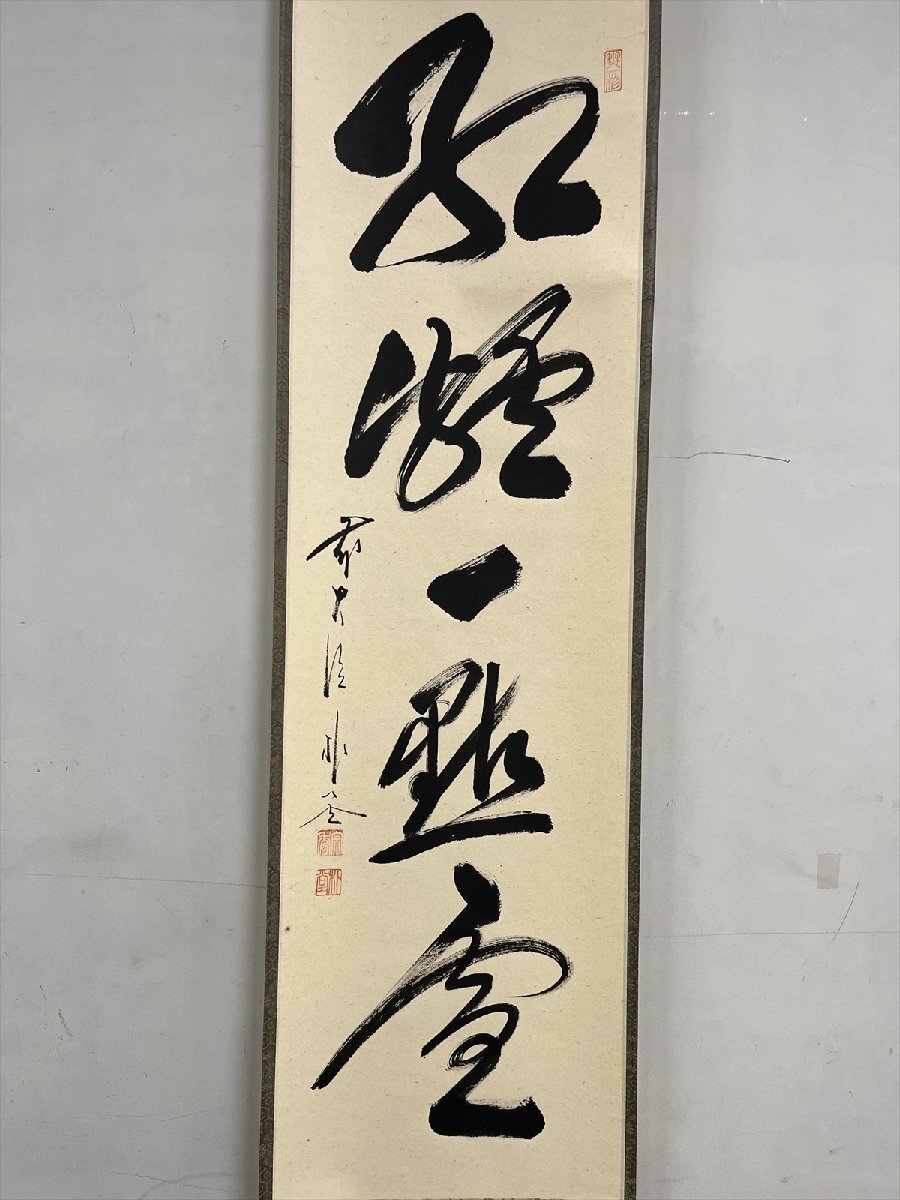 紅爐一點雪
前大徳